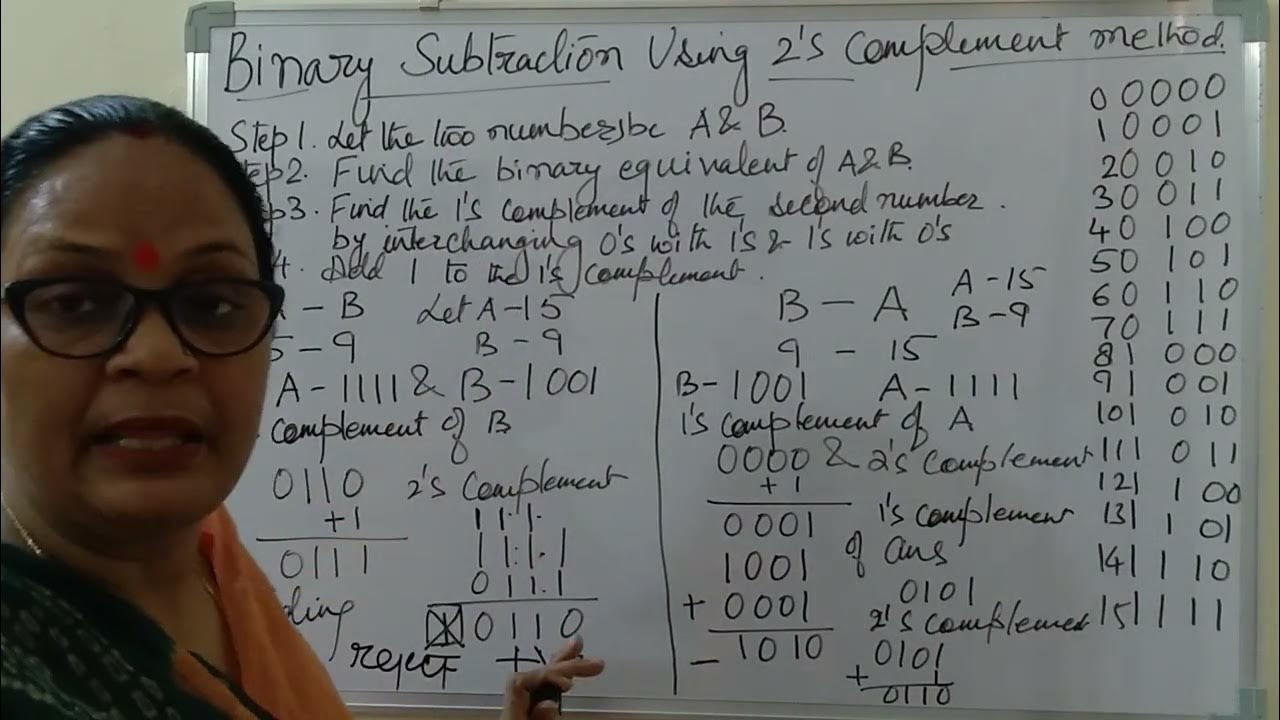 Binary Subtraction Using 2's Complement method.
Step 1. Let the two numbers be A & B.
tep2. Find the binary equivalent of A & B.
p3. Find the 1's complement of the second number.
by interchanging 0's with 1's & 1's with 0's
4. Add 1 to the 1's complement.
- B Let A-15
5-9 B-9
A-1111 & B-1001
complement of B
0110 2's Complement
+1
0111
1 1 1
1 1 1 1
0 1 1 1
ding
1 0110
reject
B - A A-15
B-9
9 - 15
B-1001 A-1111
1's complement of A
0000 & 2's Complement
+1
0001 1's complement
of ans
1001
+ 0001
- 1010
0101
2's complement
0101
+ 1
0110
0 0000
1 0001
2 0010
3 0011
4 0100
5 0101
6 0110
7 0111
8 1000
9 1001
10 1010
11 1011
12 1100
13 1101
14 1110
15 1111